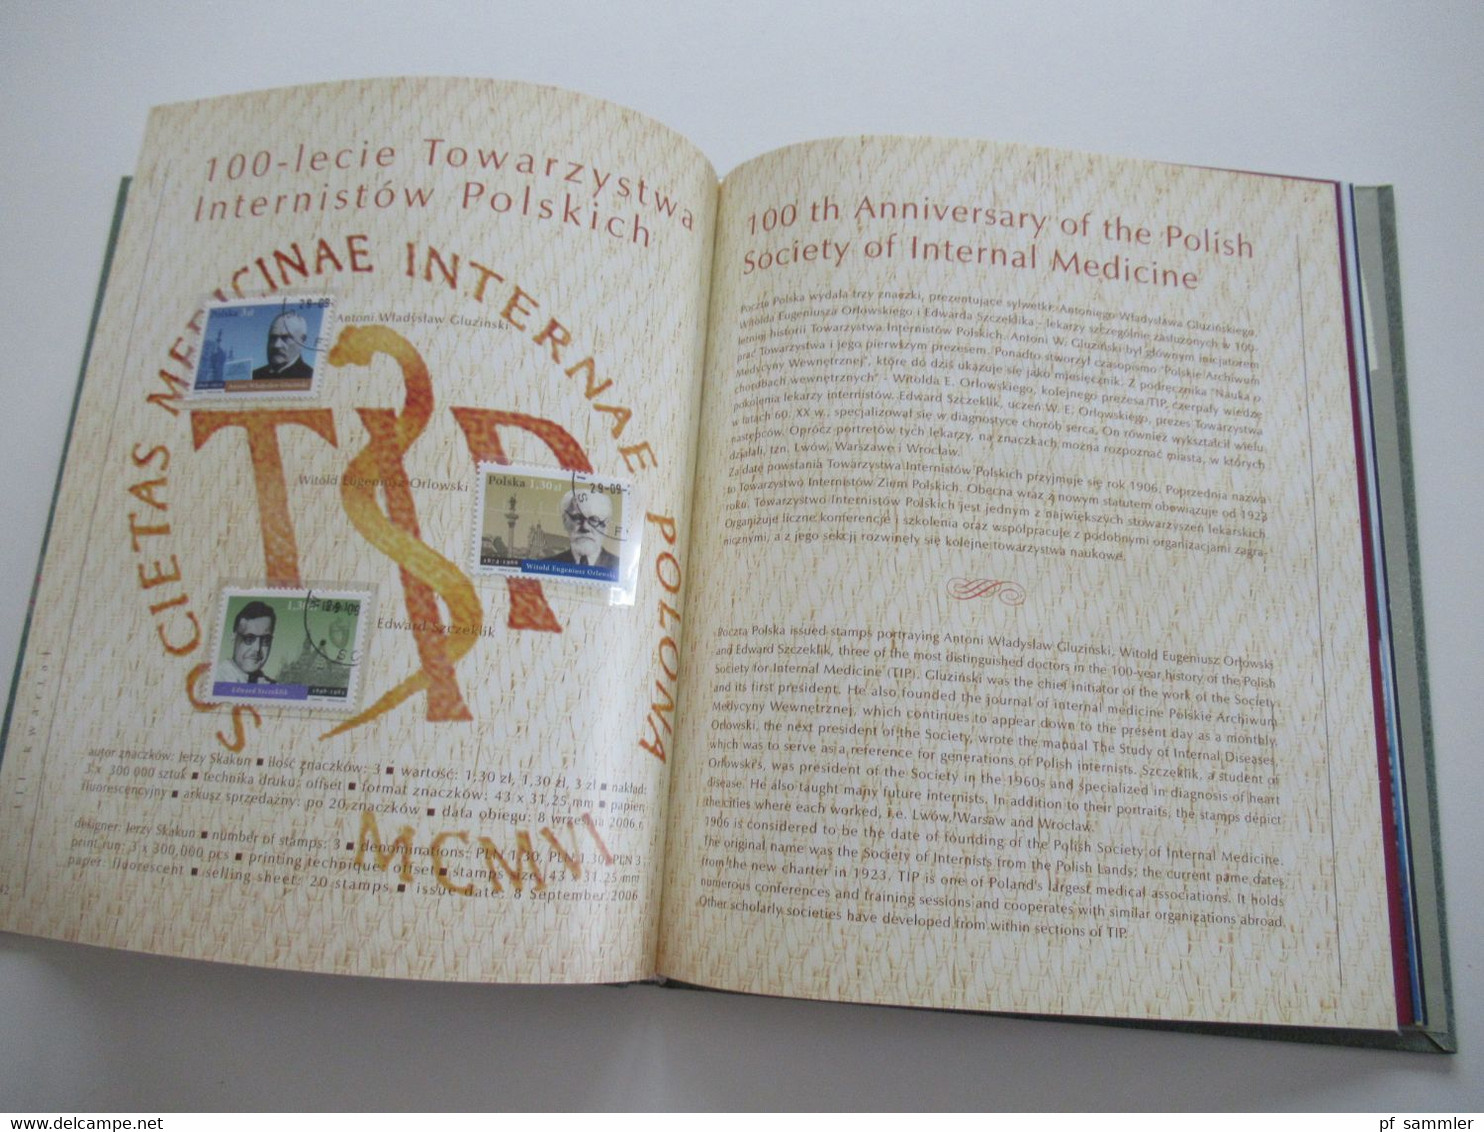 100-lecie Towarzystwa
Internistów Polskich
SOCIETAS MEDICINAE INTERNAE POLONA
Polska 3zł
29-09-
Antoni Władysław Gluziński
Antoni Władysław Gluziński
TIP
Witold Eugeniusz Orłowski
Polska 1,30 zł
29-09-
1874-1966
Witold Eugeniusz Orłowski
1,30 zł
Edward Szczeklik
Edward Szczeklik
1898-1985
MCMVI
autor znaczków: Jerzy Skakun ■ ilość znaczków: 3 ■ wartość: 1,30 zł, 1,30 zł, 3 zł ■ nakład:
3 x 300 000 sztuk ■ technika druku: offset ■ format znaczków: 43 x 31,25 mm ■ papier:
fluorescencyjny ■ arkusz sprzedażny: po 20 znaczków ■ data obiegu: 8 września 2006 r.
designer: Jerzy Skakun ■ number of stamps: 3 ■ denominations: PLN 1,30, PLN 1,30, PLN 3
print run: 3 x 300,000 pcs ■ printing technique: offset ■ stamps size: 43 x 31.25 mm
paper: fluorescent ■ selling sheet: 20 stamps ■ issue date: 8 September 2006
III kwartał
100 th Anniversary of the Polish
Society of Internal Medicine
Poczta Polska wydała trzy znaczki, prezentujące sylwetki: Antoniego Władysława Gluzińskiego,
Witolda Eugeniusza Orłowskiego i Edwarda Szczeklika – lekarzy szczególnie zasłużonych w 100-
letniej historii Towarzystwa Internistów Polskich. Antoni W. Gluziński był głównym inicjatorem
prac Towarzystwa i jego pierwszym prezesem. Ponadto stworzył czasopismo "Polskie Archiwum
Medycyny Wewnętrznej", które do dziś ukazuje się jako miesięcznik. Z podręcznika "Nauka o
chorobach wewnętrznych" - Witolda E. Orłowskiego, kolejnego prezesa TIP, czerpały wiedzę
pokolenia lekarzy internistów. Edward Szczeklik, uczeń W. E. Orłowskiego, prezes Towarzystwa
w latach 60. XX w., specjalizował się w diagnostyce chorób serca. On również wykształcił wielu
następców. Oprócz portretów tych lekarzy, na znaczkach można rozpoznać miasta, w których
działali, tzn. Lwów, Warszawę i Wrocław.
Za datę powstania Towarzystwa Internistów Polskich przyjmuje się rok 1906. Poprzednia nazwa
to Towarzystwo Internistów Ziem Polskich. Obecna wraz z nowym statutem obowiązuje od 1923
roku. Towarzystwo Internistów Polskich jest jednym z największych stowarzyszeń lekarskich.
Organizuje liczne konferencje i szkolenia oraz współpracuje z podobnymi organizacjami zagra-
nicznymi, a z jego sekcji rozwinęły się kolejne towarzystwa naukowe.
Poczta Polska issued stamps portraying Antoni Władysław Gluziński, Witold Eugeniusz Orłowski
and Edward Szczeklik, three of the most distinguished doctors in the 100-year history of the Polish
Society for Internal Medicine (TIP). Gluziński was the chief initiator of the work of the Society
and its first president. He also founded the journal of internal medicine Polskie Archiwum
Medycyny Wewnętrznej, which continues to appear down to the present day as a monthly.
Orłowski, the next president of the Society, wrote the manual The Study of Internal Diseases,
which was to serve as a reference for generations of Polish internists. Szczeklik, a student of
Orłowski's, was president of the Society in the 1960s and specialized in diagnosis of heart
disease. He also taught many future internists. In addition to their portraits, the stamps depict
the cities where each worked, i.e. Lwów, Warsaw and Wrocław.
1906 is considered to be the date of founding of the Polish Society of Internal Medicine.
The original name was the Society of Internists from the Polish Lands; the current name dates
from the new charter in 1923. TIP is one of Poland's largest medical associations. It holds
numerous conferences and training sessions and cooperates with similar organizations abroad.
Other scholarly societies have developed from within sections of TIP.
delcampe.net
pf_sammler